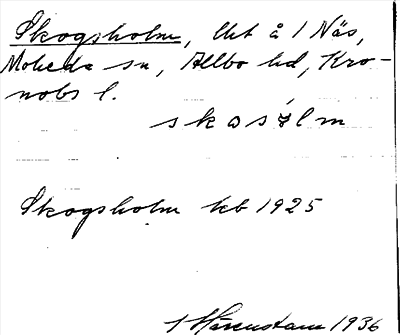 Skogsholm, lht å 1 Näs,
Moheda sn, Allbo hd, Kro-
nobs l.
skɷsɷlm
Skogsholm kb 1925
1936